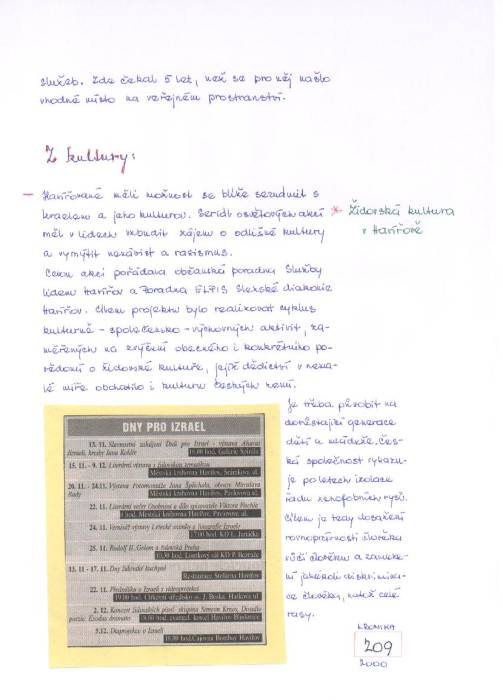 služeb. Zde čekal 5 let, než se pro něj našlo
vhodné místo na veřejném prostranství.
Z kultury:
– Havířované měli možnost se blíže seznámit s
Izraelem a jeho kulturou. Seriál osvětových akcí
měl v lidech vzbudit zájem o odlišné kultury
a vymýtit nenávist a rasismus.
* Židovská kultura
v Havířově
Celou akci pořádala občanská poradna Služby
lidem Havířov a Poradna ELPIS Slezské diakonie
Havířov. Cílem projektu bylo realizovat cyklus
kulturně – společensko – výchovných aktivit, za-
měřených na zvýšení obecného i konkrétního po-
vědomí o židovské kultuře, jejíž dědictví v nema-
lé míře obohatilo i kulturu českých zemí.
Je třeba působit na
dorůstající generace
dětí a mládeže. Čes-
ká společnost vykazu-
je po letech izolace
řadu xenofobních rysů.
Cílem je tedy dosažení
rovnoprávnosti člověka
vůči člověku a zameze-
ní jakékoli diskrimina-
ce člověka, natož celé
rasy.
DNY PRO IZRAEL
13. 11. Slavnostní zahájení Dnů pro Izrael - výstava
Izraeli, kresby Jana Koláře
18.00 hod. Galerie Spirála
15. 11. - 9. 12. Literární výstava s židovskou tematikou
Městská knihovna Havířov, Šrámkova ul.
20. 11. - 24.11. Výstava Fotomontáže Jana Šplíchala, obrazy Miroslava
Rady
Městská knihovna Havířov, Pavlovova ul.
22. 11. Literární večer Osobnost a dílo spisovatele Viktora Fischla
hod. Městská knihovna Havířov, Pavlovova ul.
24. 11. Vernisáž výstavy Letecké snímky a fotografie Izraele
17.00 hod. KD L. Janáčka
25. 11. Rudolf II, Golem a židovská Praha
hod. Loutkový sál KD P. Bezruče
13. 11. - 17. 11. Dny židovské kuchyně
Restaurace Stelarka Havířov
22. 11. Přednáška o Izraeli s videoprojekcí
hod. Církevní středisko sv. J. Boska
2. 12. Koncert židovských písní- skupina Simeon Krass, Divadlo
poezie, Exodus dramatis
hod. evangel. kostel Havířov Bludovice
5.12. Diaprojekce o Izraeli
hod. Čajovna Bombay Havířov
KRONIKA
209
2000